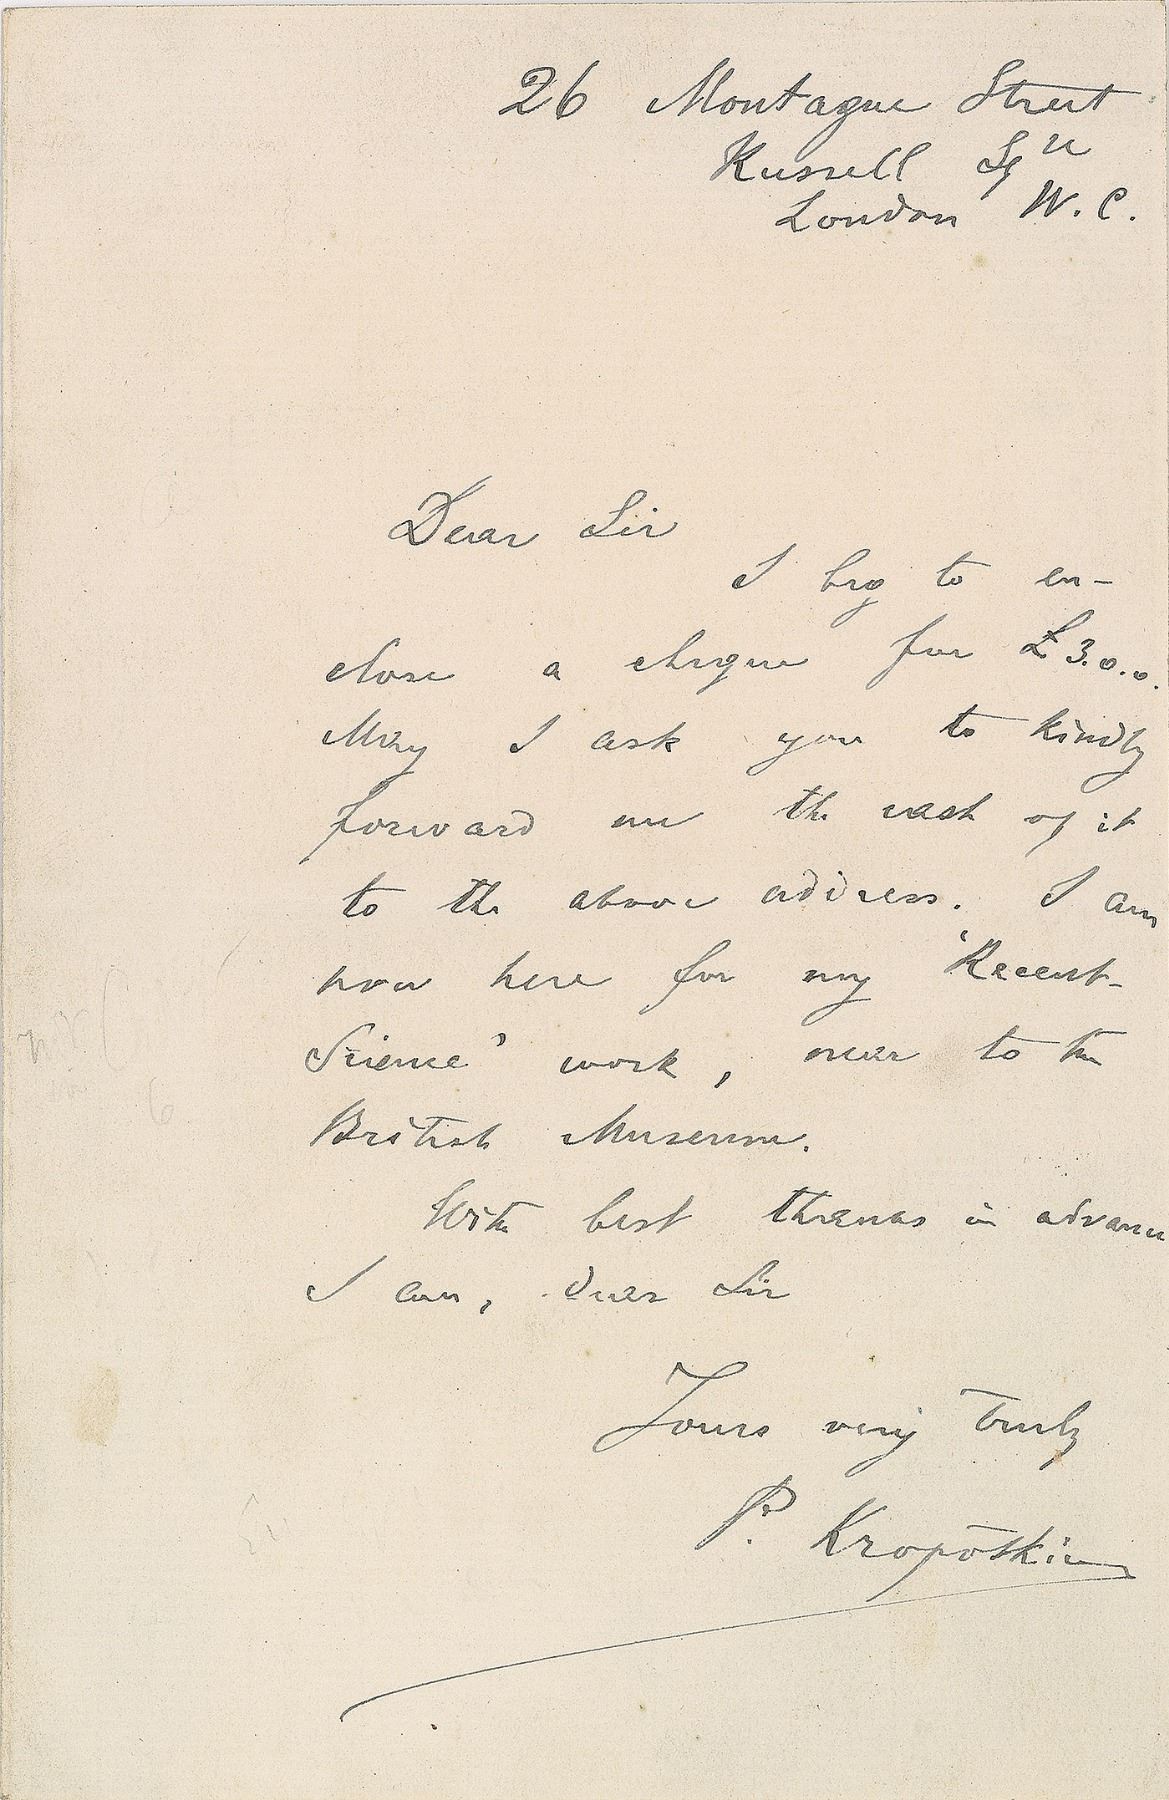 26 Montague Street
Russell Sq re
London W. C.
Dear Sir
I beg to en-
close a cheque for £3.0.0.
May I ask you to kindly
forward me the cash of it
to the above address. I am
now here for my 'Recent
Science' work, near to the
British Museum.
With best thanks in advance
I am, dear Sir
Yours very truly
P. Kropótkin